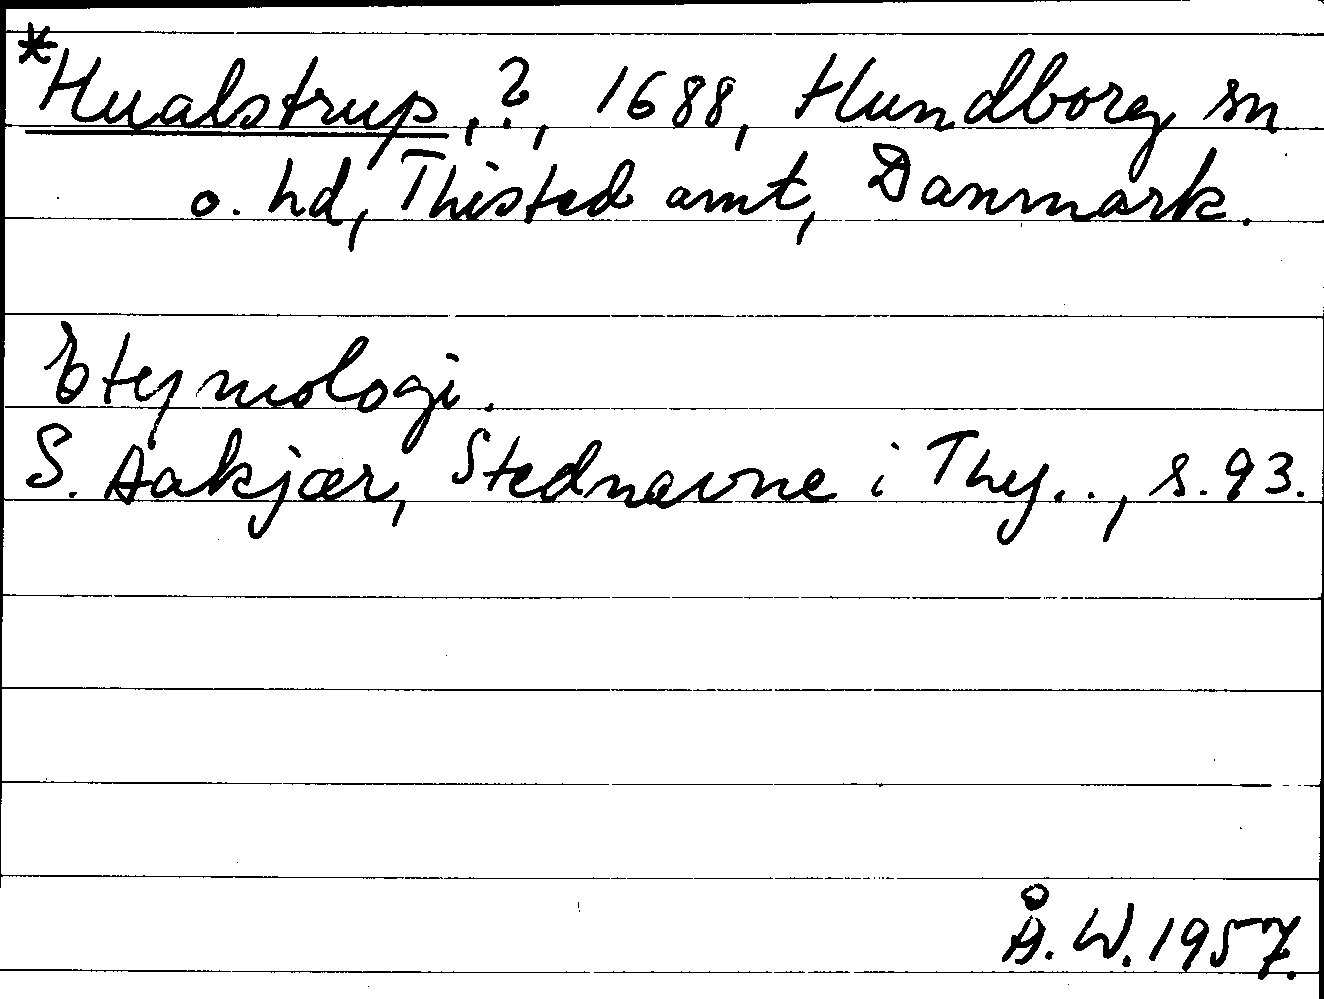 *Hualstrup, ?, 1688, Hundborg sn
o. hd, Thisted amt, Danmark.
Etymologi.
S. Aakjær, Stednavne i Thy.., s. 93.
Å. W. 1957.